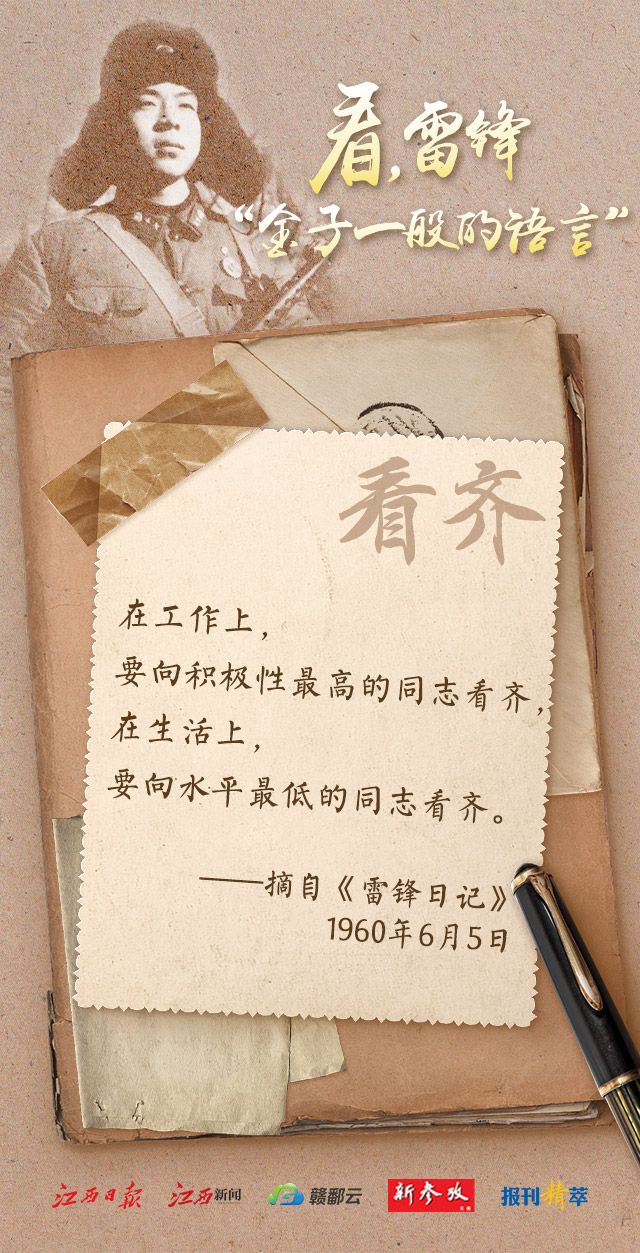 看,雷锋
“金子一般的语言”
看齐
在工作上，
要向积极性最高的同志看齐，
在生活上，
要向水平最低的同志看齐。
——摘自《雷锋日记》
1960年6月5日
江西日报 江西新闻 赣鄱云 新参攷 报刊精萃